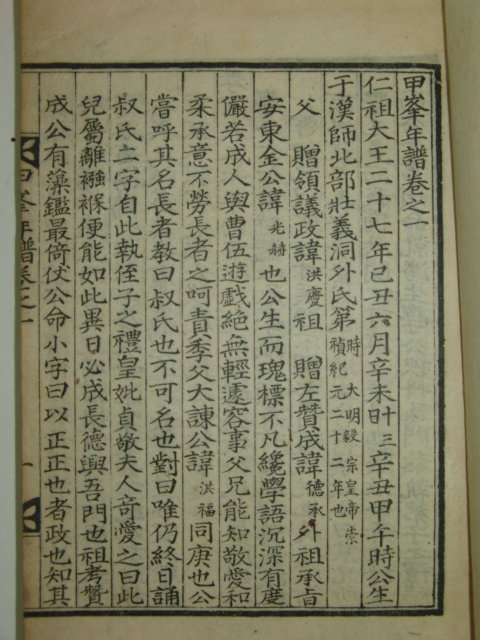 甲峯年譜卷之一
仁祖大王二十七年己丑六月辛未廿三辛丑甲午時公生
于漢師北部壯義洞外氏第 時 大明毅宗皇帝崇禎紀元二十二年也
父 贈領議政諱洪慶祖 贈左贊成諱德承外祖承旨
安東金公諱光赫也公生而瑰標不凡纔學語沉深有度
儼若成人與曹伍遊戲絶無輕遽容事父兄能知敬愛和
柔承意不勞長者之呵責季父大諫公諱洪福同庚也公
嘗呼其名長者敎曰叔氏也不可名也對曰唯仍終日誦
叔氏二字自此執侄子之禮皇妣貞敬夫人奇愛之曰此
兒屬離襁褓便能如此異日必成長德興吾門也祖考贊
成公有藻鑑最倚伏公命小字曰以正正也者政也知其
甲峯年譜卷之一
一